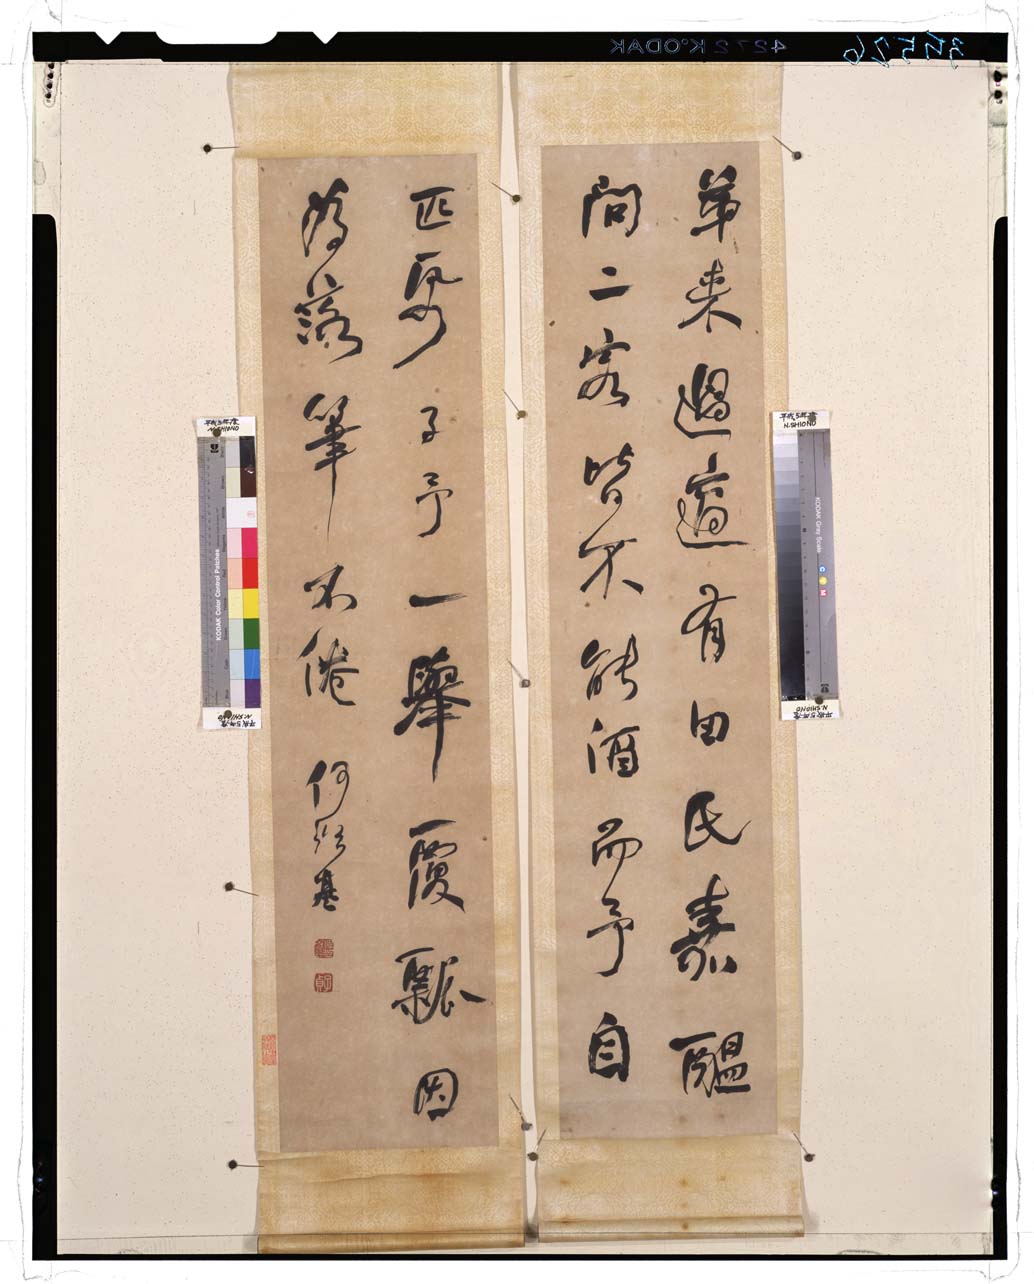 弟来過適有田民嘉醖
問二客皆不能酒而予自
匹子予一舉覆瓢因
為落筆不倦 何紹基
平成5年度
N.SHIONO
平成5年度
N.SHIONO
KODAK Color Control Patches
KODAK Gray Scale
C Y M
平成5年度
N.SHIONO
平成5年度
N.SHIONO
4272 KODAK